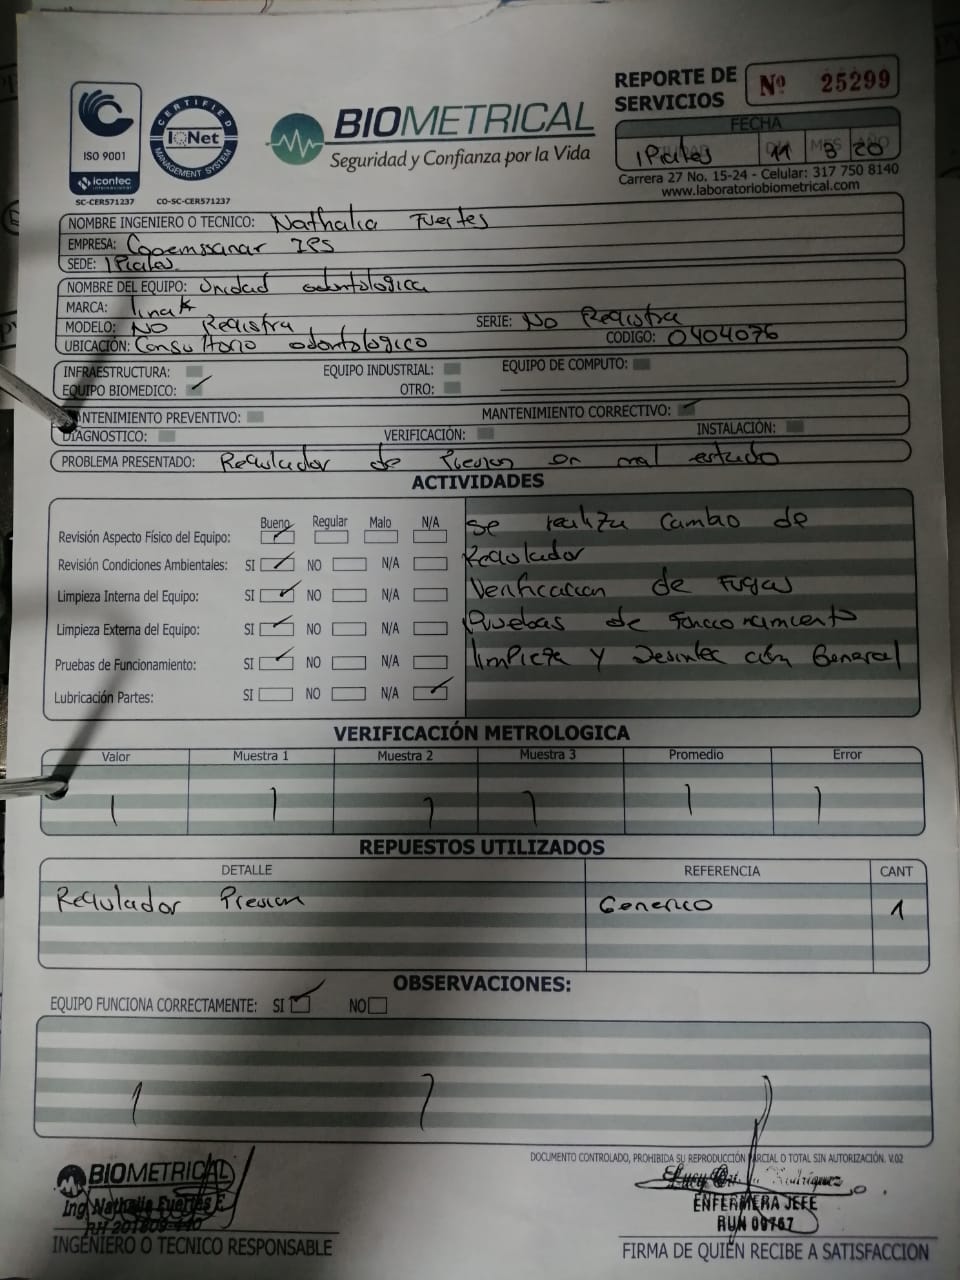 REPORTE DE SERVICIOS
Nº 25299
ISO 9001
icontec
internacional
SC-CER571237
CERTIFIED
IQNet
MANAGEMENT SYSTEM
CO-SC-CER571237
BIOMETRICAL
Seguridad y Confianza por la Vida
FECHA
IPiales 11 3 20
Carrera 27 No. 15-24 - Celular: 317 750 8140
www.laboratoriobiometrical.com
NOMBRE INGENIERO O TECNICO: Nathalia Fuertes
EMPRESA: Coemssanar IPS
SEDE: IPiales
NOMBRE DEL EQUIPO: Unidad odontologica
MARCA: linak
MODELO: NO Registra SERIE: No Registra
UBICACIÓN: Consultorio odontologico CODIGO: 0404076
INFRAESTRUCTURA: EQUIPO INDUSTRIAL: EQUIPO DE COMPUTO:
EQUIPO BIOMEDICO: ✓ OTRO:
MANTENIMIENTO PREVENTIVO: MANTENIMIENTO CORRECTIVO: ✓
DIAGNOSTICO: VERIFICACIÓN: INSTALACIÓN:
PROBLEMA PRESENTADO: Regulador de Presion en mal estado
ACTIVIDADES
Bueno Regular Malo N/A
Revisión Aspecto Físico del Equipo: ✓
Revisión Condiciones Ambientales: SI ✓ NO N/A
Limpieza Interna del Equipo: SI ✓ NO N/A
Limpieza Externa del Equipo: SI ✓ NO N/A
Pruebas de Funcionamiento: SI ✓ NO N/A
Lubricación Partes: SI NO N/A ✓
Se realiza Cambio de
Regulador
Verificacion de Fugas
Pruebas de Funcionamiento
limpieza y Desinfección General
VERIFICACIÓN METROLOGICA
Valor Muestra 1 Muestra 2 Muestra 3 Promedio Error
REPUESTOS UTILIZADOS
DETALLE REFERENCIA CANT
Regulador Presion Generico 1
OBSERVACIONES:
EQUIPO FUNCIONA CORRECTAMENTE: SI ✓ NO
DOCUMENTO CONTROLADO, PROHIBIDA SU REPRODUCCIÓN PARCIAL O TOTAL SIN AUTORIZACIÓN. V.02
BIOMETRICAL
Ing. Nathalia Fuertes F.
INGENIERO O TECNICO RESPONSABLE
Rodriguez
ENFERMERA JEFE
RUN 09767
FIRMA DE QUIEN RECIBE A SATISFACCION